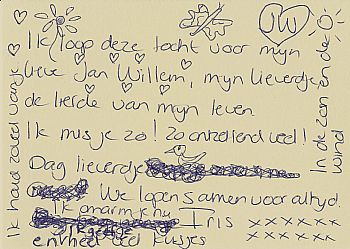 Ik loop deze tocht voor mijn
lieve Jan Willem, mijn lieverdje
de liefde van mijn leven
Ik mis je zo! Zo ontzettend veel!
Dag lieverdje
We lopen samen voor altijd.
Ik omarm je nu Iris xxxxxx
en heel veel kusjes xxxxxx
Ik houd zoveel van je
In de zon en de
wind
JW